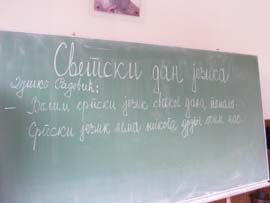 Светски дан језика
Душко Радовић:
– Волим српски језик сваког дана помало.
Српски језик нема никога другог осим нас.